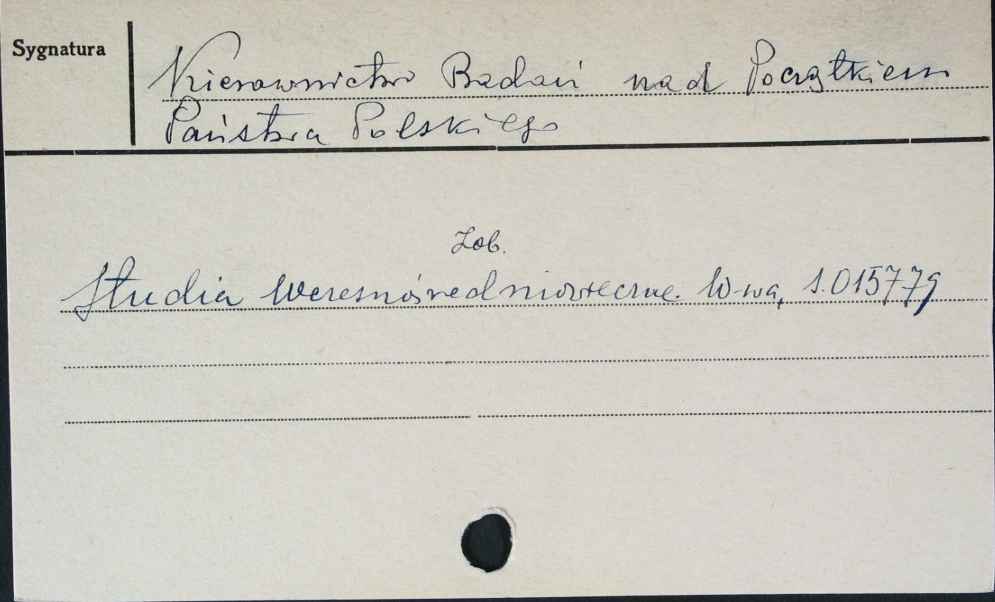 Sygnatura
Kierownictwo Badań nad Początkiem
Państwa Polskiego
Zob.
Studia wczesnośredniowieczne. W-wa, S.015779